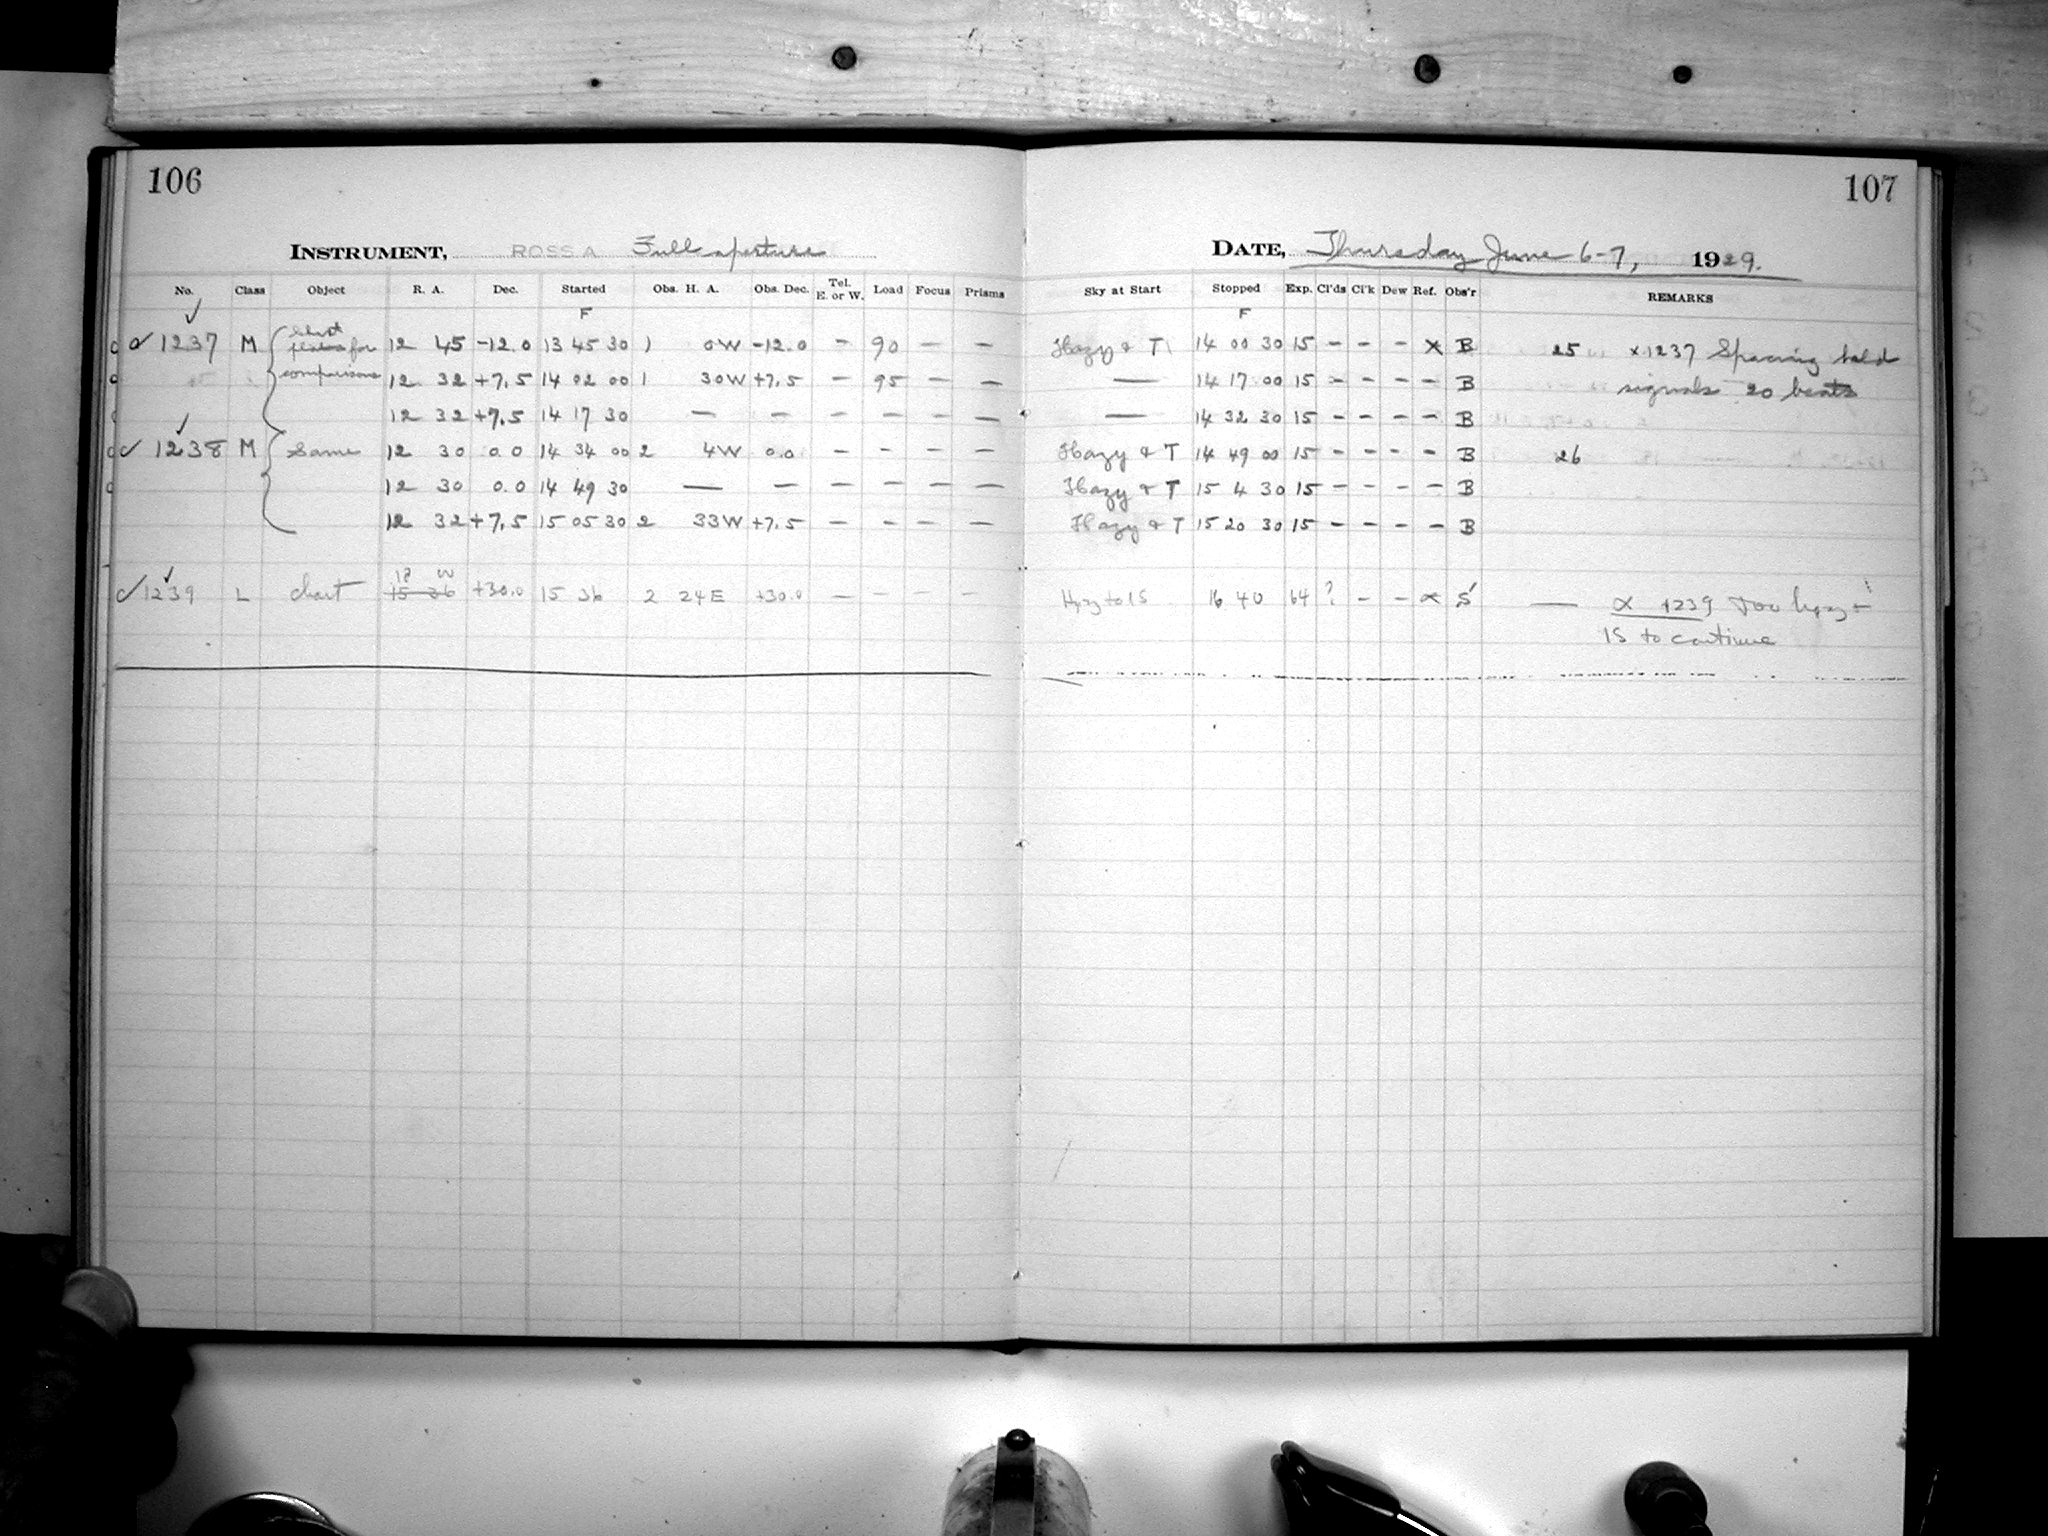 106
107
INSTRUMENT, ROSS A Full aperture
DATE, Thursday June 6-7, 1929.
No. Class Object R. A. Dec. Started Obs. H. A. Obs. Dec. Tel. E. or W. Load Focus Prisms Sky at Start Stopped Exp. Cl'ds Cl'k Dew Ref. Obs'r REMARKS
F F
1237 M plates for 12 45 -12.0 13 45 30 1 0W -12.0 - 90 - - Hazy & T 14 00 30 15 - - - x B 25 x1237 Spacing held
comparisons 12 32 +7.5 14 02 00 1 30W +7.5 - 95 - - — 14 17 00 15 - - - - B signals 20 beats
12 32 +7.5 14 17 30 — - - - - - — 14 32 30 15 - - - - B
1238 M Same 12 30 0.0 14 34 00 2 4W 0.0 - - - - Hazy & T 14 49 00 15 - - - - B 26
12 30 0.0 14 49 30 — - - - - - Hazy & T 15 4 30 15 - - - - B
12 32 +7.5 15 05 30 2 33W +7.5 - - - - Hazy & T 15 20 30 15 - - - - B
1239 L chart 15 36 +30.0 15 36 2 24E +30.0 - - - - Hazy to 15 16 40 64 ? - - x S — x 1239 Too hazy +
15 to continue